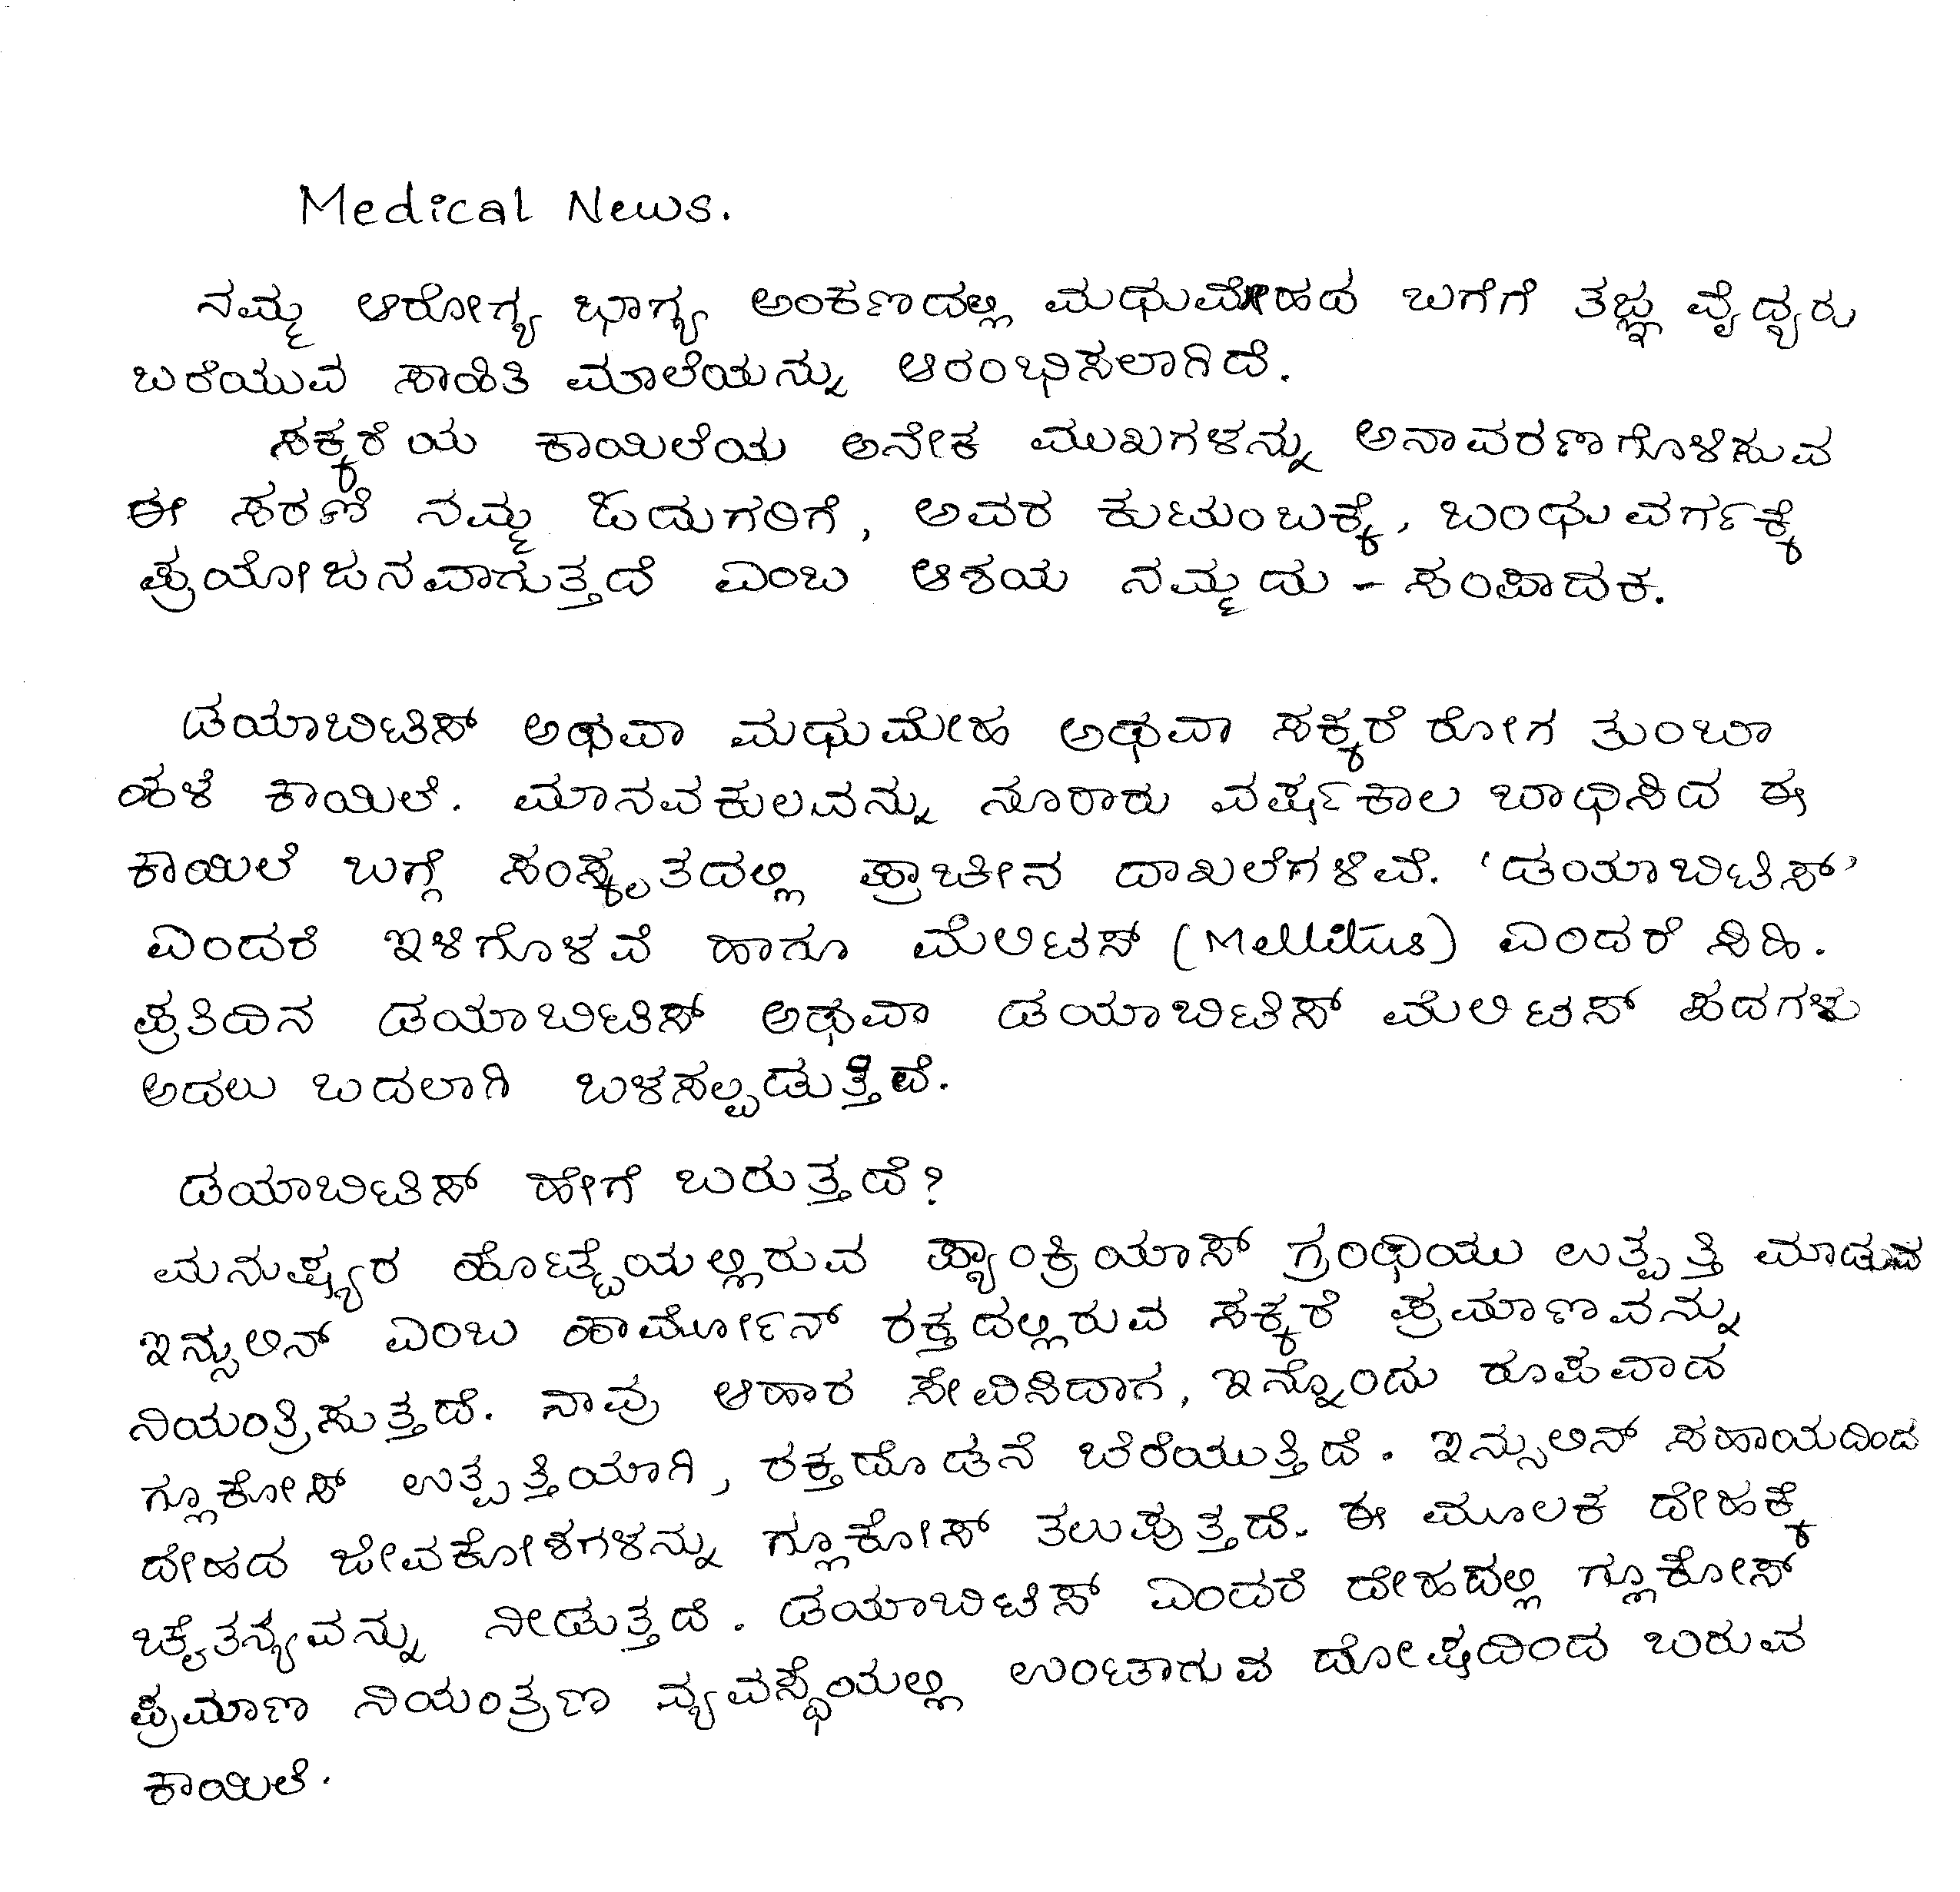 Medical News.
ನಮ್ಮ ಆರೋಗ್ಯ ಭಾಗ್ಯ ಅಂಕಣದಲ್ಲಿ ಮಧುಮೇಹದ ಬಗೆಗೆ ತಜ್ಞ ವೈದ್ಯರು
ಬರೆಯುವ ಸಾಹಿತಿ ಮಾಲೆಯನ್ನು ಆರಂಭಿಸಲಾಗಿದೆ.
ಸಕ್ಕರೆಯ ಕಾಯಿಲೆಯ ಅನೇಕ ಮುಖಗಳನ್ನು ಅನಾವರಣಗೊಳಿಸುವ
ಈ ಸರಣಿ ನಮ್ಮ ಓದುಗರಿಗೆ, ಅವರ ಕುಟುಂಬಕ್ಕೆ, ಬಂಧುವರ್ಗಕ್ಕೆ
ಪ್ರಯೋಜನವಾಗುತ್ತದೆ ಎಂಬ ಆಶಯ ನಮ್ಮದು - ಸಂಪಾದಕ.
ಡಯಾಬಿಟಿಸ್ ಅಥವಾ ಮಧುಮೇಹ ಅಥವಾ ಸಕ್ಕರೆ ರೋಗ ತುಂಬಾ
ಹಳೆ ಕಾಯಿಲೆ. ಮಾನವಕುಲವನ್ನು ನೂರಾರು ವರ್ಷಕಾಲ ಬಾಧಿಸಿದ ಈ
ಕಾಯಿಲೆ ಬಗ್ಗೆ ಸಂಸ್ಕೃತದಲ್ಲಿ ಪ್ರಾಚೀನ ದಾಖಲೆಗಳಿವೆ. ‘ಡಯಾಬಿಟಿಸ್’
ಎಂದರೆ ಇಳಿಗೊಳವೆ ಹಾಗೂ ಮೆಲಿಟಸ್ (Mellitus) ಎಂದರೆ ಸಿಹಿ.
ಪ್ರತಿದಿನ ಡಯಾಬಿಟಿಸ್ ಅಥವಾ ಡಯಾಬಿಟಿಸ್ ಮೆಲಿಟಸ್ ಪದಗಳು
ಅದಲು ಬದಲಾಗಿ ಬಳಸಲ್ಪಡುತ್ತಿವೆ.
ಡಯಾಬಿಟಿಸ್ ಹೇಗೆ ಬರುತ್ತದೆ?
ಮನುಷ್ಯರ ಹೊಟ್ಟೆಯಲ್ಲಿರುವ ಪ್ಯಾಂಕ್ರಿಯಾಸ್ ಗ್ರಂಥಿಯು ಉತ್ಪತ್ತಿ ಮಾಡುವ
ಇನ್ಸುಲಿನ್ ಎಂಬ ಹಾರ್ಮೋನ್ ರಕ್ತದಲ್ಲಿರುವ ಸಕ್ಕರೆ ಪ್ರಮಾಣವನ್ನು
ನಿಯಂತ್ರಿಸುತ್ತದೆ. ನಾವು ಆಹಾರ ಸೇವಿಸಿದಾಗ, ಇನ್ನೊಂದು ರೂಪವಾದ
ಗ್ಲೂಕೋಸ್ ಉತ್ಪತ್ತಿಯಾಗಿ, ರಕ್ತದೊಡನೆ ಬೆರೆಯುತ್ತಿದೆ. ಇನ್ಸುಲಿನ್ ಸಹಾಯದಿಂದ
ದೇಹದ ಜೀವಕೋಶಗಳನ್ನು ಗ್ಲೂಕೋಸ್ ತಲುಪುತ್ತದೆ. ಈ ಮೂಲಕ ದೇಹಕ್ಕೆ
ಚೈತನ್ಯವನ್ನು ನೀಡುತ್ತದೆ. ಡಯಾಬಿಟಿಸ್ ಎಂದರೆ ದೇಹದಲ್ಲಿ ಗ್ಲೂಕೋಸ್
ಪ್ರಮಾಣ ನಿಯಂತ್ರಣ ವ್ಯವಸ್ಥೆಯಲ್ಲಿ ಉಂಟಾಗುವ ದೋಷದಿಂದ ಬರುವ
ಕಾಯಿಲೆ.